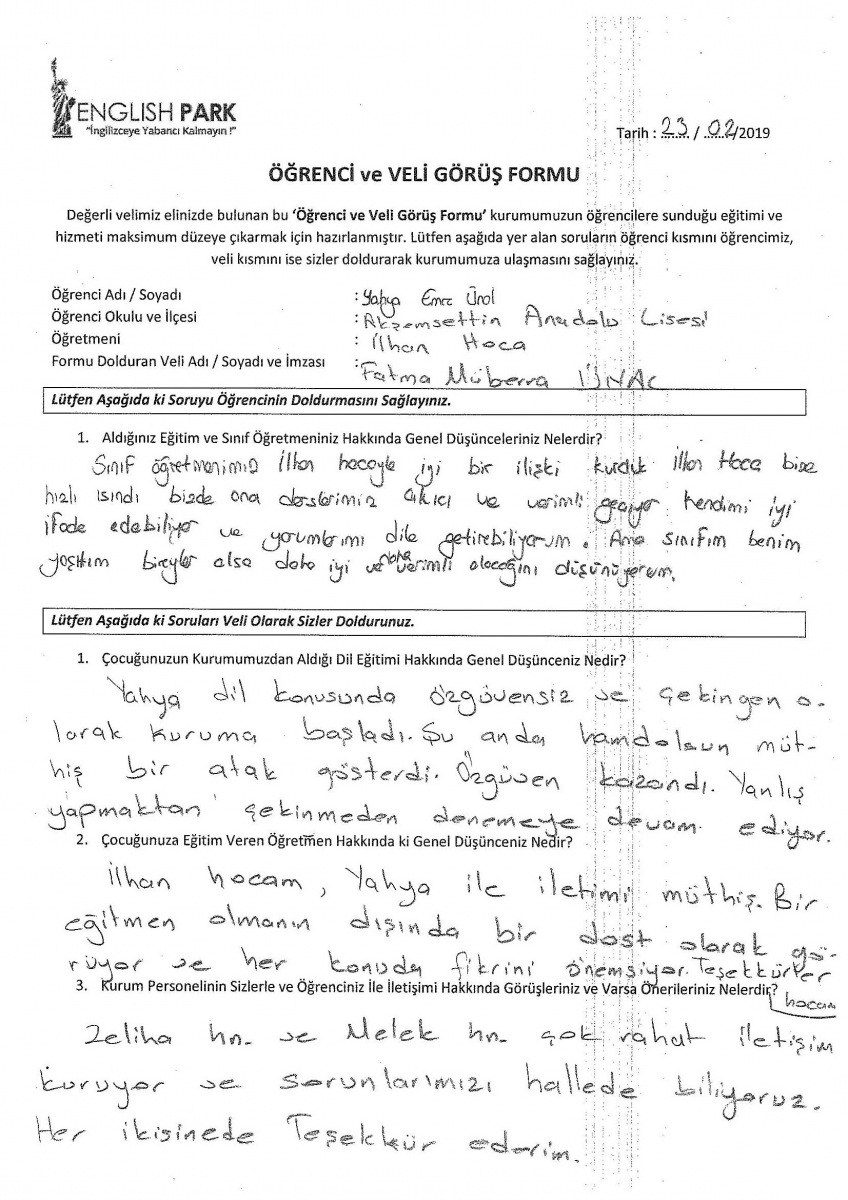 ENGLISH PARK
"İngilizceye Yabancı Kalmayın !"
Tarih : 23 / 02/2019
ÖĞRENCİ ve VELİ GÖRÜŞ FORMU
Değerli velimiz elinizde bulunan bu 'Öğrenci ve Veli Görüş Formu' kurumumuzun öğrencilere sunduğu eğitimi ve
hizmeti maksimum düzeye çıkarmak için hazırlanmıştır. Lütfen aşağıda yer alan soruların öğrenci kısmını öğrencimiz,
veli kısmını ise sizler doldurarak kurumumuza ulaşmasını sağlayınız.
Öğrenci Adı / Soyadı : Yahya Emre Ünal
Öğrenci Okulu ve İlçesi : Akşemsettin Anadolu Lisesi
Öğretmeni : İlhan Hoca
Formu Dolduran Veli Adı / Soyadı ve İmzası : Fatma Müberra ÜNAL
Lütfen Aşağıda ki Soruyu Öğrencinin Doldurmasını Sağlayınız.
1. Aldığınız Eğitim ve Sınıf Öğretmeniniz Hakkında Genel Düşünceleriniz Nelerdir?
Sınıf öğretmenimiz İlhan hocayla iyi bir ilişki kurduk İlhan Hoca bize
hızlı ısındı bizde ona derslerimiz akıcı ve verimli geçiyor kendimi iyi
ifade edebiliyor ve yorumlarımı dile getirebiliyorum. Ama sınıfım benim
yaşıtım bireyler olsa daha iyi ve daha verimli olacağını düşünüyorum.
Lütfen Aşağıda ki Soruları Veli Olarak Sizler Doldurunuz.
1. Çocuğunuzun Kurumumuzdan Aldığı Dil Eğitimi Hakkında Genel Düşünceniz Nedir?
Yahya dil konusunda özgüvensiz ve çekingen o-
larak kuruma başladı. Şu anda hamdolsun müt-
hiş bir atak gösterdi. Özgüven kazandı. Yanlış
yapmaktan çekinmeden denemeye devam ediyor.
2. Çocuğunuza Eğitim Veren Öğretmen Hakkında ki Genel Düşünceniz Nedir?
İlhan hocam, Yahya ile iletimi müthiş. Bir
eğitmen olmanın dışında bir dost olarak gö-
rüyor ve her konuda fikrini önemsiyor. Teşekkürler
hocam
3. Kurum Personelinin Sizlerle ve Öğrenciniz İle İletişimi Hakkında Görüşleriniz ve Varsa Önerileriniz Nelerdir?
Zeliha hn. ve Melek hn. çok rahat iletişim
kuruyor ve sorunlarımızı hallede biliyoruz.
Her ikisinede Teşekkür ederim.